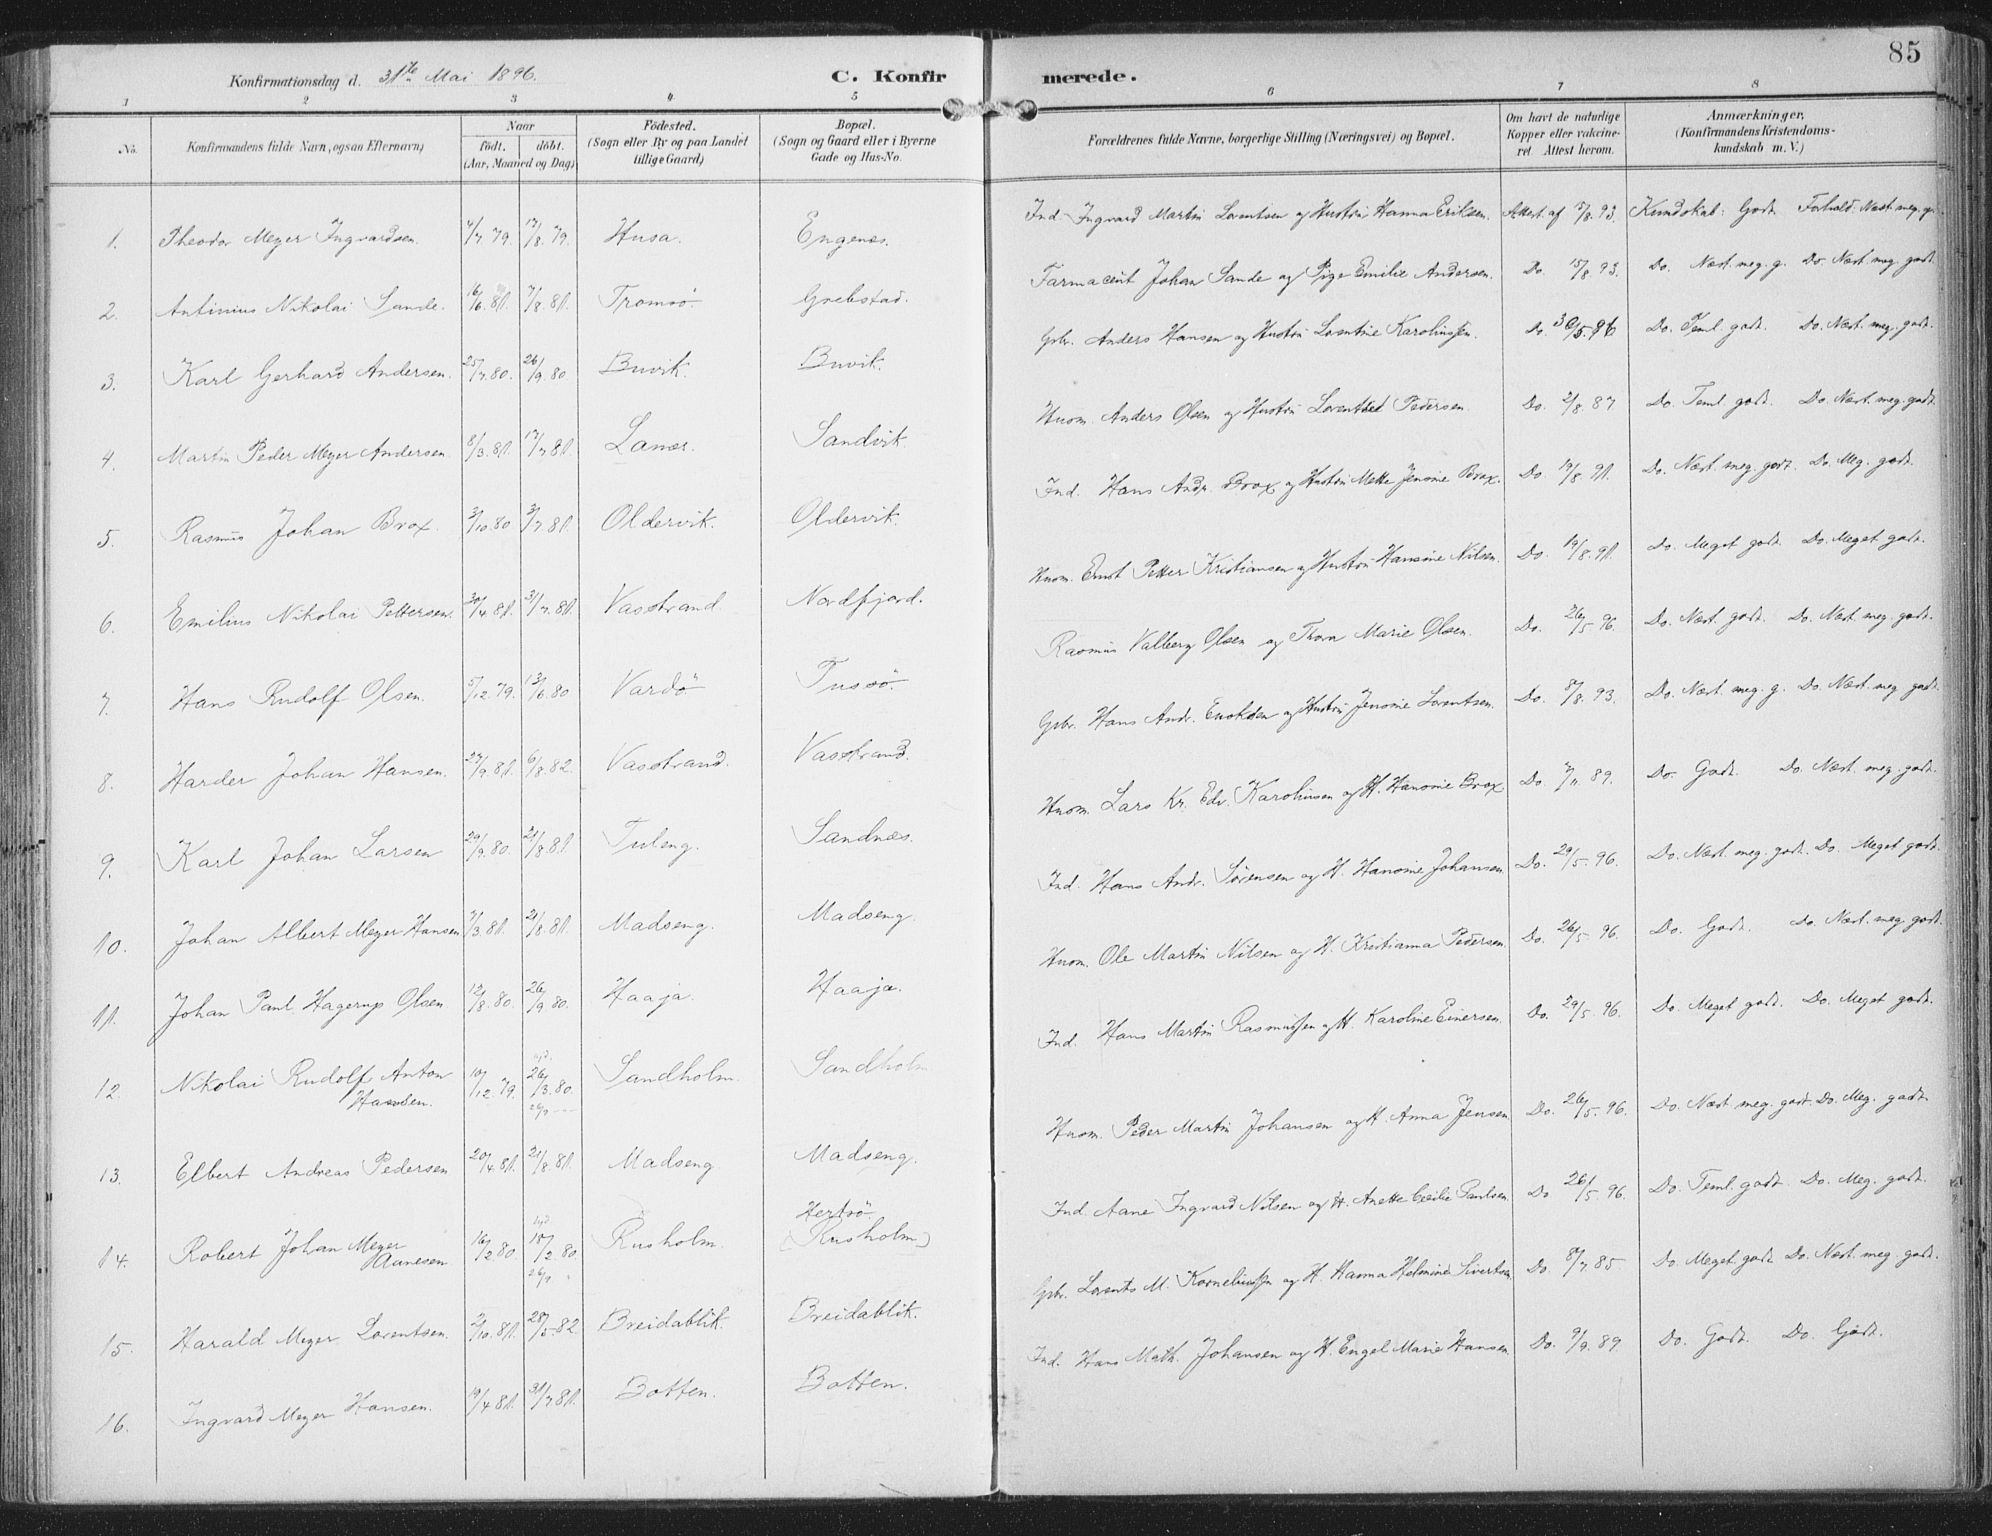 85
Konfirmationsdag d. 31te Mai 1896. C. Konfirmerede.
1 2 3 4 5 6 7 8
No. Konfirmandens fulde Navn, ogsaa Efternavn) Naar födt. döbt. (Aar, Maaned og Dag) Födested. (Sogn eller By og paa Landet tillige Gaard) Bopæl. (Sogn og Gaard eller i Byerne Gade og Hus-No. Forældrenes fulde Navne, borgerlige Stilling (Næringsvei) og Bopæl. Om havt de naturlige Kopper eller vakcineret. Attest herom. Anmærkninger, (Konfirmandens Kristendomskundskab m. V.)
1. Theodor Meyer Ingvardsen. 4/7 79. 17/8. 79. Husa. Engenæs. Ind. Ingvard Martin Lorentsen og Hustru Hanna Eriksen. Attest af 15/8. 93. Kundskab: Godt. Forhold: Næst. meg. g.
2. Antinius Nikolai Sande. 16/6. 81. 7/8. 81. Tromsö. Grebstad. Farmaceut Johan Sande og Pige Emilie Andersen. Do. 15/8. 93. Do. Næst. meg. g. Do. Næst. meg. godt.
3. Karl Gerhard Andersen. 25/7. 80. 26/9. 80 Buvik. Buvik. Gbr. Anders Hansen og Hustru Lorentine Karolinssen. Do. 30/5. 96 Do. Teml. godt. Do. Næst. meg. godt.
4. Martin Peder Meyer Andersen. 8/3. 81. 17/7 81. Lanær. Sandvik Husm. Anders Olsen og Hustru Pedersen. Do. 2/8. 87 Do. Teml. godt. Do. Næst. meg. godt.
5. Rasmus Johan Brox. 3/10. 80 3/7. 81. Oldervik. Oldervik. Ind. Hans Andr. Brox og Hustru Mette Jensine Brox. Do. 19/8. 91. Do. Næst. meg. godt. Do. Meg. godt.
6. Emilius Nikolai Pettersen. 30/4. 81. 31/7. 81. Vasstrand Nordfjord. Husm. Ernst Petter Kristiansen og Hustru Hansine Nilsen. Do. 19/8. 91. Do. Meget godt. Do. Meget godt.
7. Hans Rudolf Olsen. 5/12. 79. 13/6. 80 Vardö Tussö. Rasmus Valberg Olsen og Marie Olsen. Do. 26/5. 96. Do. Næst. godt. Do. Næst. meg. godt.
8. Harder Johan Hansen. 27/9. 81. 6/8. 82. Vasstrand. Vasstrand. Gbr. Hans Andr. Enoksen og Hustru Jensine Lorentsen. Do. 8/8. 93. Do. Næst. meg. g. Do. Næst. meg. godt.
9. Karl Johan Larsen 29/9. 80. 21/8. 81 Tuleng. Sandnæs. Husm. Lars Kr. Edv. Karolinsen og H. Hansine Brox Do. 89. Do. Godt. Do. Næst. meg. godt.
10. Johan Albert Meyer Hansen 7/3. 81. 21/8. 81. Madseng. Madseng. Ind. Hans Andr. Sörensen og H. Hansine Johansen. Do. 29/5. 96. Do. Næst. meg. godt. Do. Meget godt.
11. Johan Paul Hagerup Olsen 12/8. 80. 26/9. 80. Haaja. Haaja. Husm. Ole Martin Nilsen og H. Kristianna Pedersen. Do. 26/5. 96. Do. Godt. Do. Næst. meg. godt.
12. Nikolai Rudolf Anton Hansen. 10/12. 79. 26/3. 80. Sandholm. Sandholm Ind. Hans Martin Rasmussen og H. Karoline Einersen. Do. 29/5. 96. Do. Meget godt. Do. Meget godt.
13. Elbert Andreas Pedersen 20/4. 81. 21/8. 81. Madseng Madseng. Husm. Peder Martin Johansen og H. Anna Jensen. Do. 26/5. 96. Do. Næst. meg. godt. Do. Meg. godt.
14. Robert Johan Meyer Aunesen 16/2. 80 18/2. 80. Rusholm. Hersö (Rusholm) Ind. Aane Ingvard Nilsen og H. Anette Cecilie Paulsen. Do. 26/5. 96. Do. Teml. godt. Do. Meg. godt.
15. Harald Meyer Lorentsen. 2/10. 81. 28/5. 82. Breidablik. Breidablik. Gbr. Lorents M. Korneliussen og H. Hanna Helmine Sivertsen. Do. 8/7 85. Do. Meget godt. Do. Næst. meg. godt.
16. Ingvard Meyer Hansen. 19/4 81. 31/7 81. Botten. Botten. Ind. Hans Math. Johansen og H. Engel Marie Hansen. Do. 9/9. 89. Do. Godt. Do. Godt.